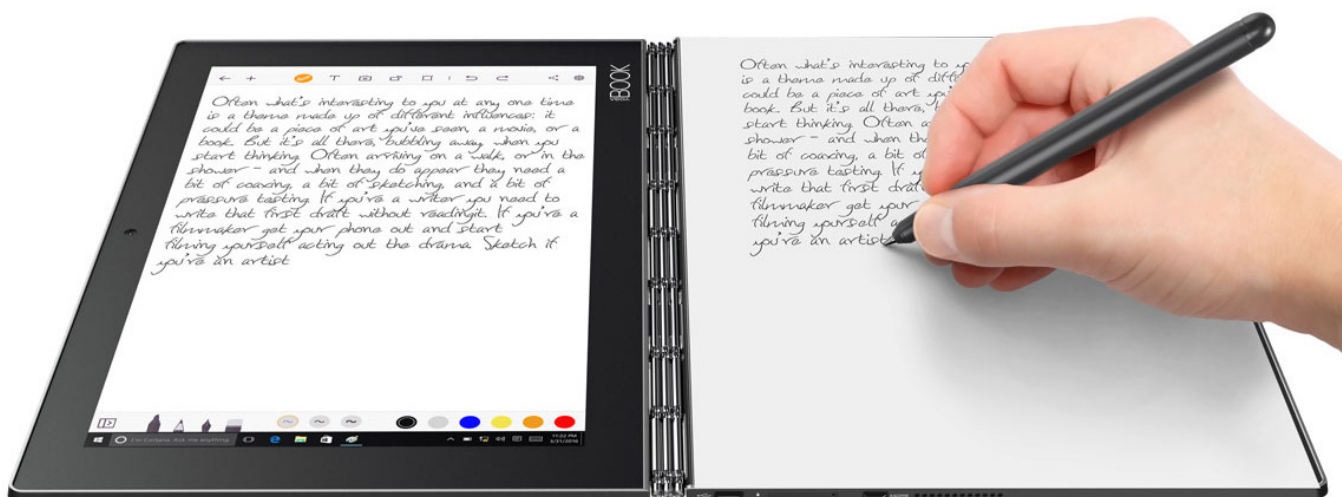 BOOK
Often what's interesting to you at any one time
is a theme made up of different influences: it
could be a piece of art you've seen, a movie, or a
book. But it's all there, bubbling away when you
start thinking. Often arriving on a walk, or in the
shower - and when they do appear they need a
bit of coaxing, a bit of sketching, and a bit of
pressure testing. If you're a writer you need to
write that first draft without readingit. If you're a
filmmaker get your phone out and start
filming yourself acting out the drama. Sketch if
you're an artist
I'm Cortana. Ask me anything.
11:22 PM
5/31/2016
Often what's interesting to
is a theme made up of
could be a piece of art
book. But it's all there,
start thinking. Often
shower - and when
bit of coaxing, a bit of
pressure testing. If
write that first draft
filmmaker get your
filming yourself
you're an artist